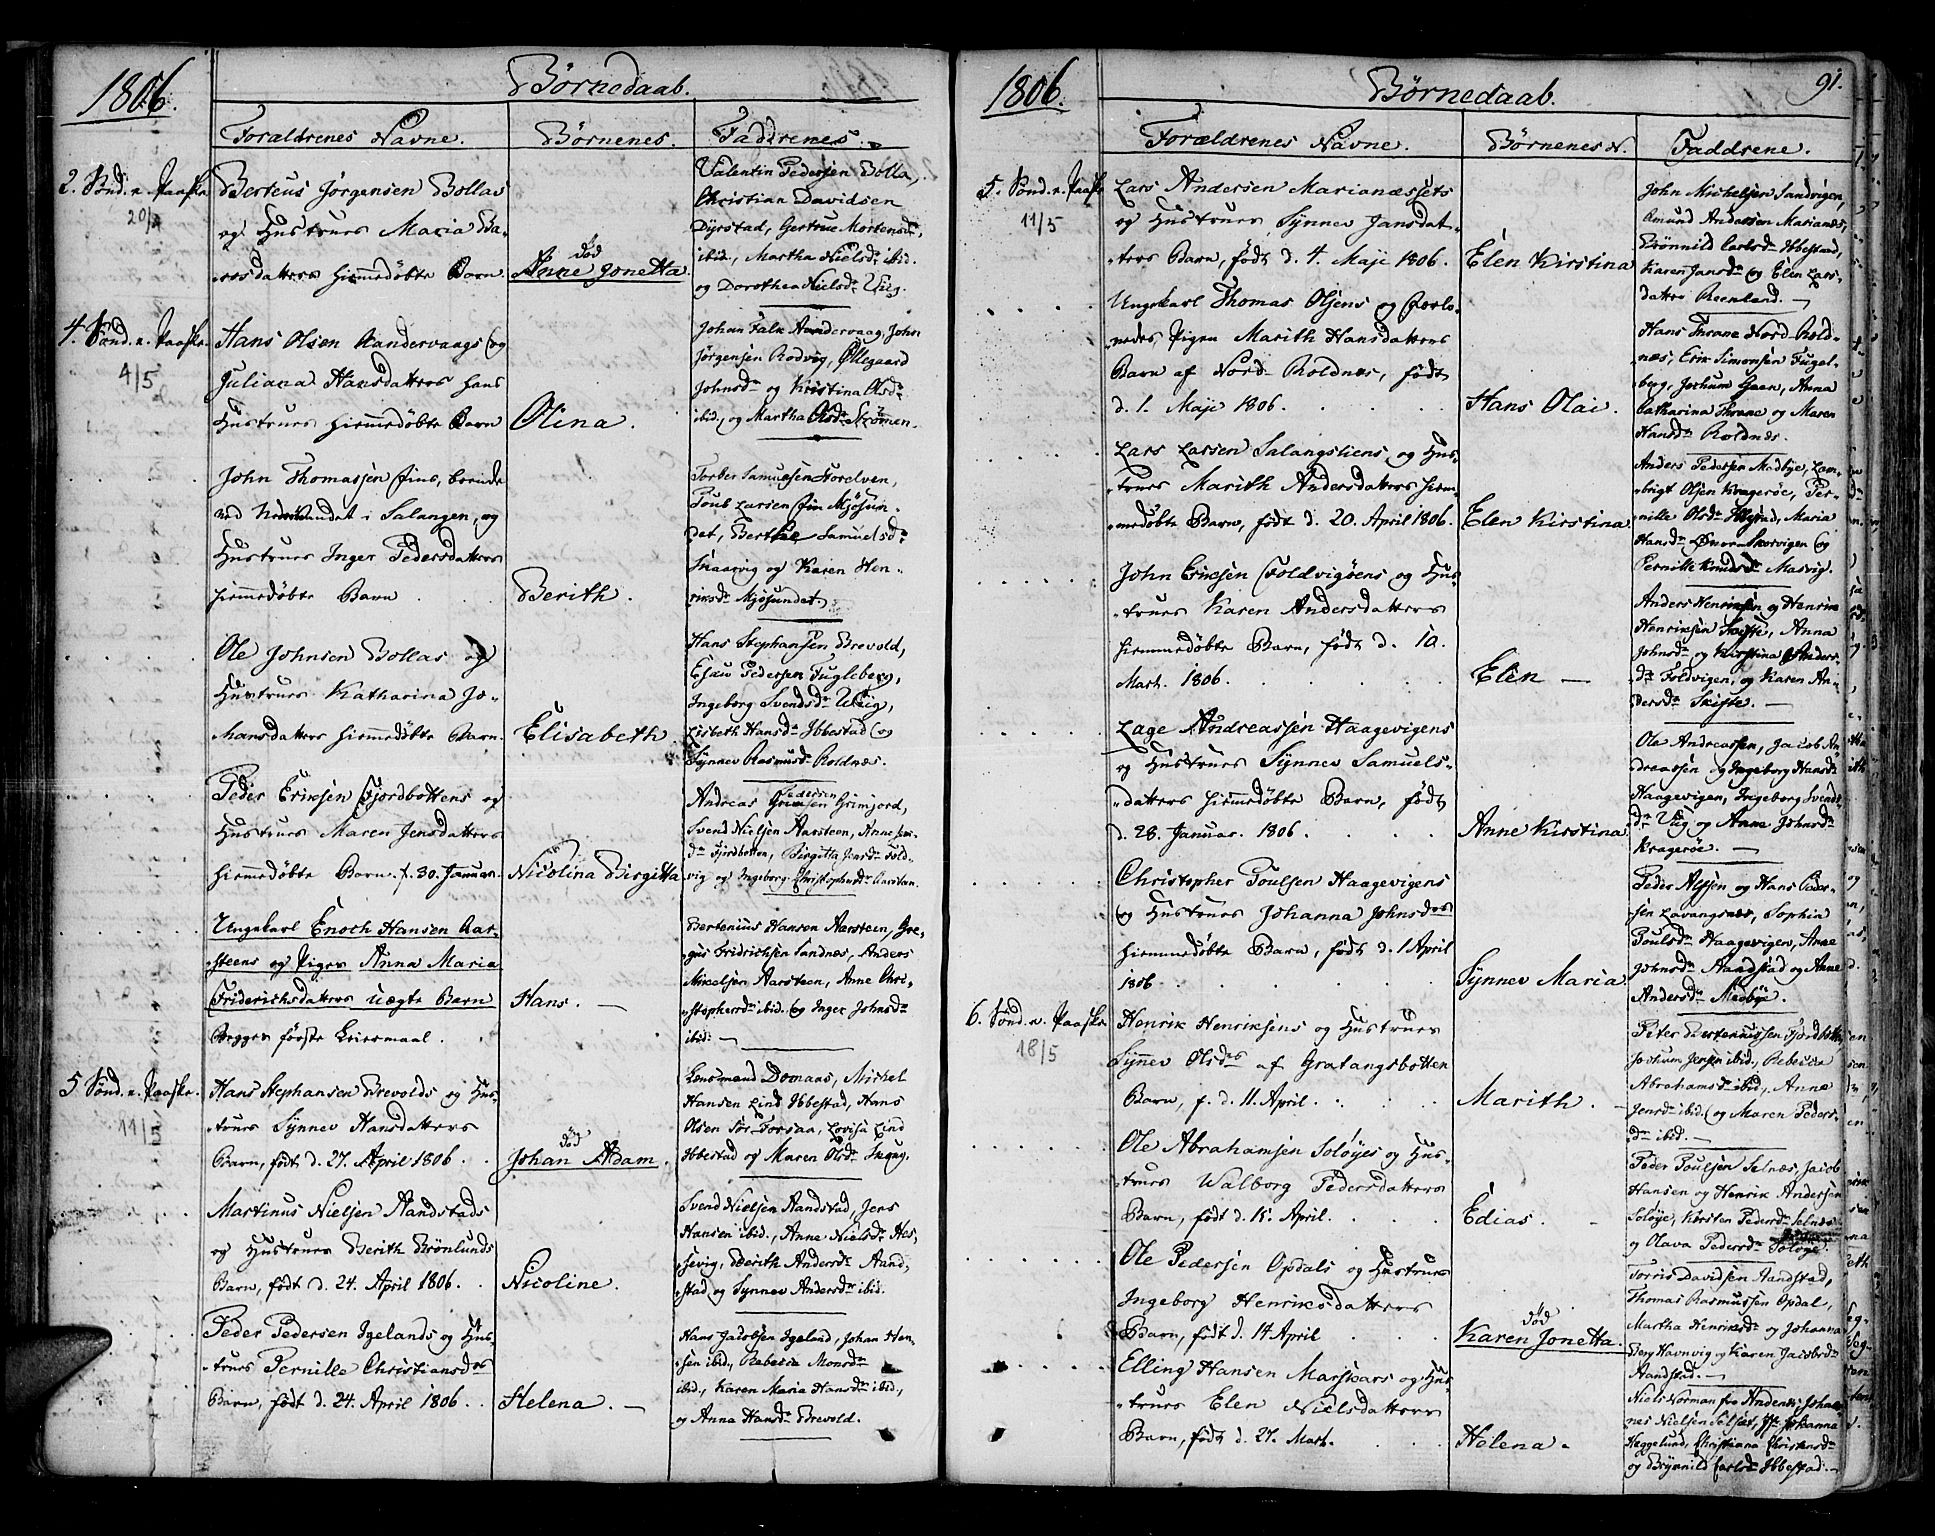 1806.
Børnedaab.
Forældrenes Navne.
Børnenes.
Faddrenes.
2. Sønd. e. Paaske
Berteus Jørgensen Bollas
og Hustrues Maria Ba-
hiemmedøbte Barn
død
Anne Jonetta.
Valentin Pedersen Bolla,
Christian Davidsen
Dyrstad, Gertrue Mortensdr
ibid., Martha Nielsdr ibid.
og Dorothea Nielsdr
4. Sønd. e. Paaske.
4/5
Hans Olsen Aandervaags og
Juliana Hansdatters hans
Hustrues hiemmedøbte Barn
Olina.
Johan Falk Aandervaag, John
Jørgensen Rodvog, Øllegaard
Johnsdr og Kirstina Olsdr
ibid., og Martha Olsdr Strømmen.
John Thomassen Fins, boende
ved Vandet i Salangen, og
Hustrues Inger Pedersdatters
hiemmedøbte Barn
Berith.
Torber Samuelsen Hordelven,
Poul Larsen Fin Mjøsun-
det, Berthe Samuelsd.
og Karen Hen-
riksdr Mjøsundet
Ole Johnsen Bollas og
Hustrues Katharina Jo-
hansdatters hiemmedøbte Barn
Elisabeth
Hans Stephansen Brevold,
Esau Pedersen Fugleberg,
Ingeborg Svendsdr
Lisbeth Hansdr Ibbestad og
Synnev Rasmusdr Roldnæs.
Peder Eriksen Fjordbottens og
Hustrues Maren Jensdatters
hiemmedøbte Barn. f. 30. Januar.
Nicolina Birgitta
Pedersen
Andreas Grimjord,
Svend Nielsen Aarsteen, Anne
dr Fjordbotten, Birgitta Jensdr Fold-
vig og Ingeborg Christophersdr Aarsteen.
Ungekarl Enoch Hansen Aar-
steens og Pigen Anna Maria
Friderichsdatters uægte Barn
Begges første Leiermaal.
Hans.
Bertenius Hansen Aarsteen, Gre-
gus Fridrichsen Sandnæs, Anders
Mikelsen Aarsteen, Anne Chri-
stophersdr ibid. og Inger Johnsdr
ibid.
5. Sønd. e. Paaske.
11/5
Hans Stephansen Brevolds og Hus-
trues Synnev Hansdatters
Barn, født d. 27. April 1806.
død
Johan Adam.
Lensmand Domaas, Michel
Hansen Lind Ibbestad, Hans
Olsen Sør-Forsaa, Lovisa Lind
Ibbestad og Maren Olsdr
Martinus Nielsen Aandstads
og Hustrues Berith Brönlunds
Barn, født d. 24. April 1806.
Nicoline.
Svend Nielsen Aandstad, Jens
Hansen ibid., Anne Nielsdr Hes-
sevig, Berith Andersdr Aand-
stad og Synnev Andersdr ibid.
Peder Pedersen Igelands og Hus-
trues Pernille Christiansdrs
Barn, født d. 24. April 1806.
Helena.
Hans Jacobsen Igeland, Johan Hen-
sen ibid., Rebecka Monsdr
ibid., Karen Maria Hansdr ibid.,
og Anna Hansdr Brevold.
1806.
Børnedaab.
91.
Forældrenes Navne.
Børnenes N.
Faddrene.
5. Sønd. e. Paaske
11/5
Lars Andersen Marianæssets
og Hustrues Synnev Jansdat-
ters Barn, født d. 4. Maji 1806.
Elen Kirstina
John Michelsen Sandvigen,
Amund Andersen Marianæs,
Brønnild Carlsdr Ibbestad,
Karen Jansdr og Elen Lars-
datter Reenland.
Ungekarl Thomas Olsens og Forlo-
vedes Pigen Marith Hansdatters
Barn af Nord-Roldnæs, født
d. 1. Maji 1806.
Hans Olai.
Hans Thrane Nord-Rold-
næs, Erik Simonsen Fugel-
berg, Jochum Gaen, Anna
Catharina Thrane og Maren
Hansdr Roldnæs.
Lars Larsen Salangsliens og Hus-
trues Marith Andersdatters hiem-
medøbte Barn, født d. 20. April 1806.
Elen Kirstina
Anders Pedersen Medbye, Lam-
brigt Olsen Kragerøe, Per-
nille Olsdr Ibbestad, Maria
Hansdr Skorvigen og
Pernille Knudsdr Masvig.
John Eriksen Foldvigøens og Hus-
trues Karen Andersdatters
hiemmedøbte Barn, født d. 10.
Mart. 1806.
Elen
Anders Henriksen og Henrik
Henriksen Skifte, Anna
Johnsdr og Kirstina Anders-
dr Foldvigen, og Karen An-
dersdr Skifte.
Lage Andreassen Haagevigens
og Hustrues Synnev Samuels-
datters hiemmedøbte Barn, født
d. 28. Januar. 1806.
Anne Kirstina
Ole Andreassen, Jacob An-
dreassen og Ingeborg Hansdr
Haagevigen, Ingeborg Svends-
dr Vug og Anne Johnsdr
Kragerøe.
Christopher Poulsen Haagevigens
og Hustrues Johanna Johnsdrs
hiemmedøbte Barn, født d. 1 April
1806
Synnev Maria
Peder Alssen og Hans Peder-
sen Lavangsnæs, Sophia
Poulsdr Haagevigen, Anne
Johnsdr Aandstad og Anne
Andersdr Medbye.
6. Sønd. e. Paaske
18/5
Henrik Henriksens og Hustrues
Synnev Olsdrs af Gratangsbotten
Barn, f. d. 11. April.
Marith.
Peter Fjordbotten,
Jochum Jensen ibid., Rebecka
Abrahamsdr ibid., Anne
Jensdr ibid. og Maren Peders-
dr ibid.
Ole Abrahamsen Soløyes og Hus-
trues Walborg Pedersdatters
Barn, født d. 15. April.
Edias.
Peder Poulsen Selnæs, Jacob
Hansen og Henrik Andersen
Soløye, Kirsten Pedersdr Selnæs
og Olava Pedersdr Soløye
Ole Pedersen Opdals og Hustrues
Ingeborg Henriksdatters
Barn, født d. 14 April
død
Karen Jonetta.
Torris Davidsen Aandstad,
Thomas Rasmussen Opdal,
Martha Henriksdr og Johanna
Berg Havnvig og Karen Jacobsdr
Aandstad.
Elling Hansen Marskars og Hus-
trues Elen Nielsdatters
Barn, født d. 27. Mart.
Helena.
Niels Norman fra Andenæs, Johan-
nes Nielsen Selset, Johanna
Heggelund, Christianna Christensdr
og Brynnild Carlsdr Ibbestad.